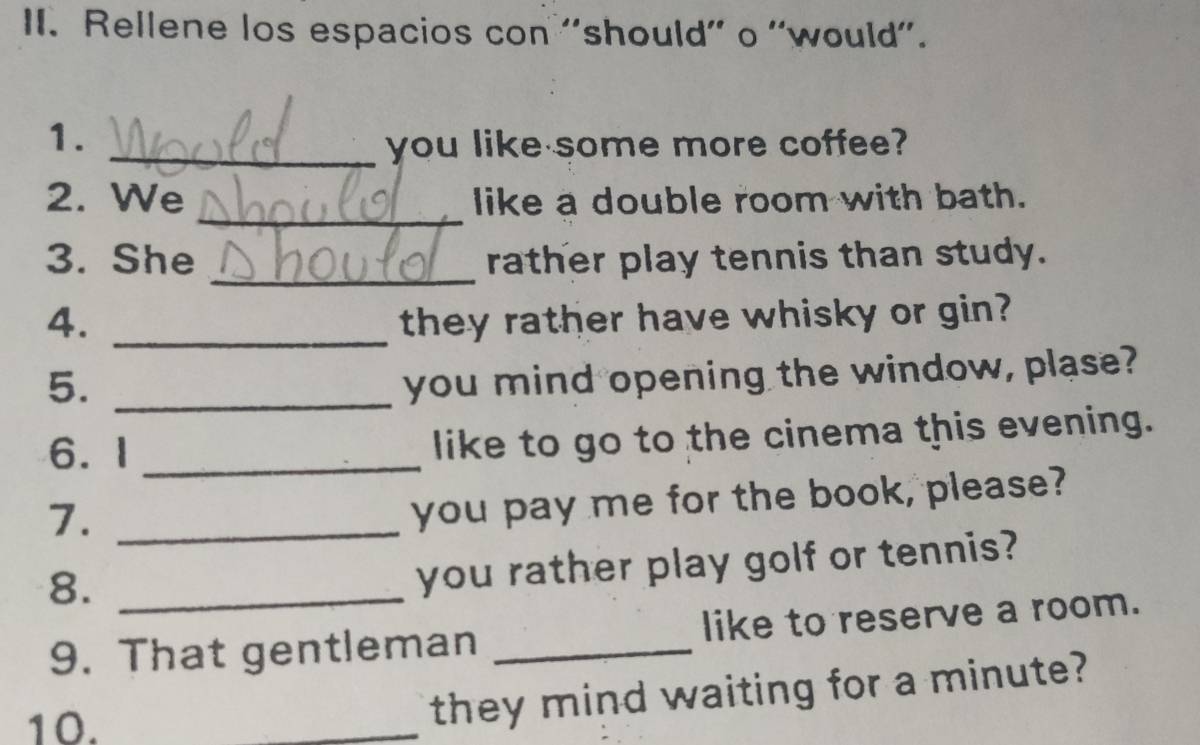 II. Rellene los espacios con "should" o "would".
1. Would you like some more coffee?
2. We should like a double room with bath.
3. She should rather play tennis than study.
4. ____________ they rather have whisky or gin?
5. ____________ you mind opening the window, plase?
6. I ____________ like to go to the cinema this evening.
7. ____________ you pay me for the book, please?
8. ____________ you rather play golf or tennis?
9. That gentleman ____________ like to reserve a room.
10. ____________ they mind waiting for a minute?